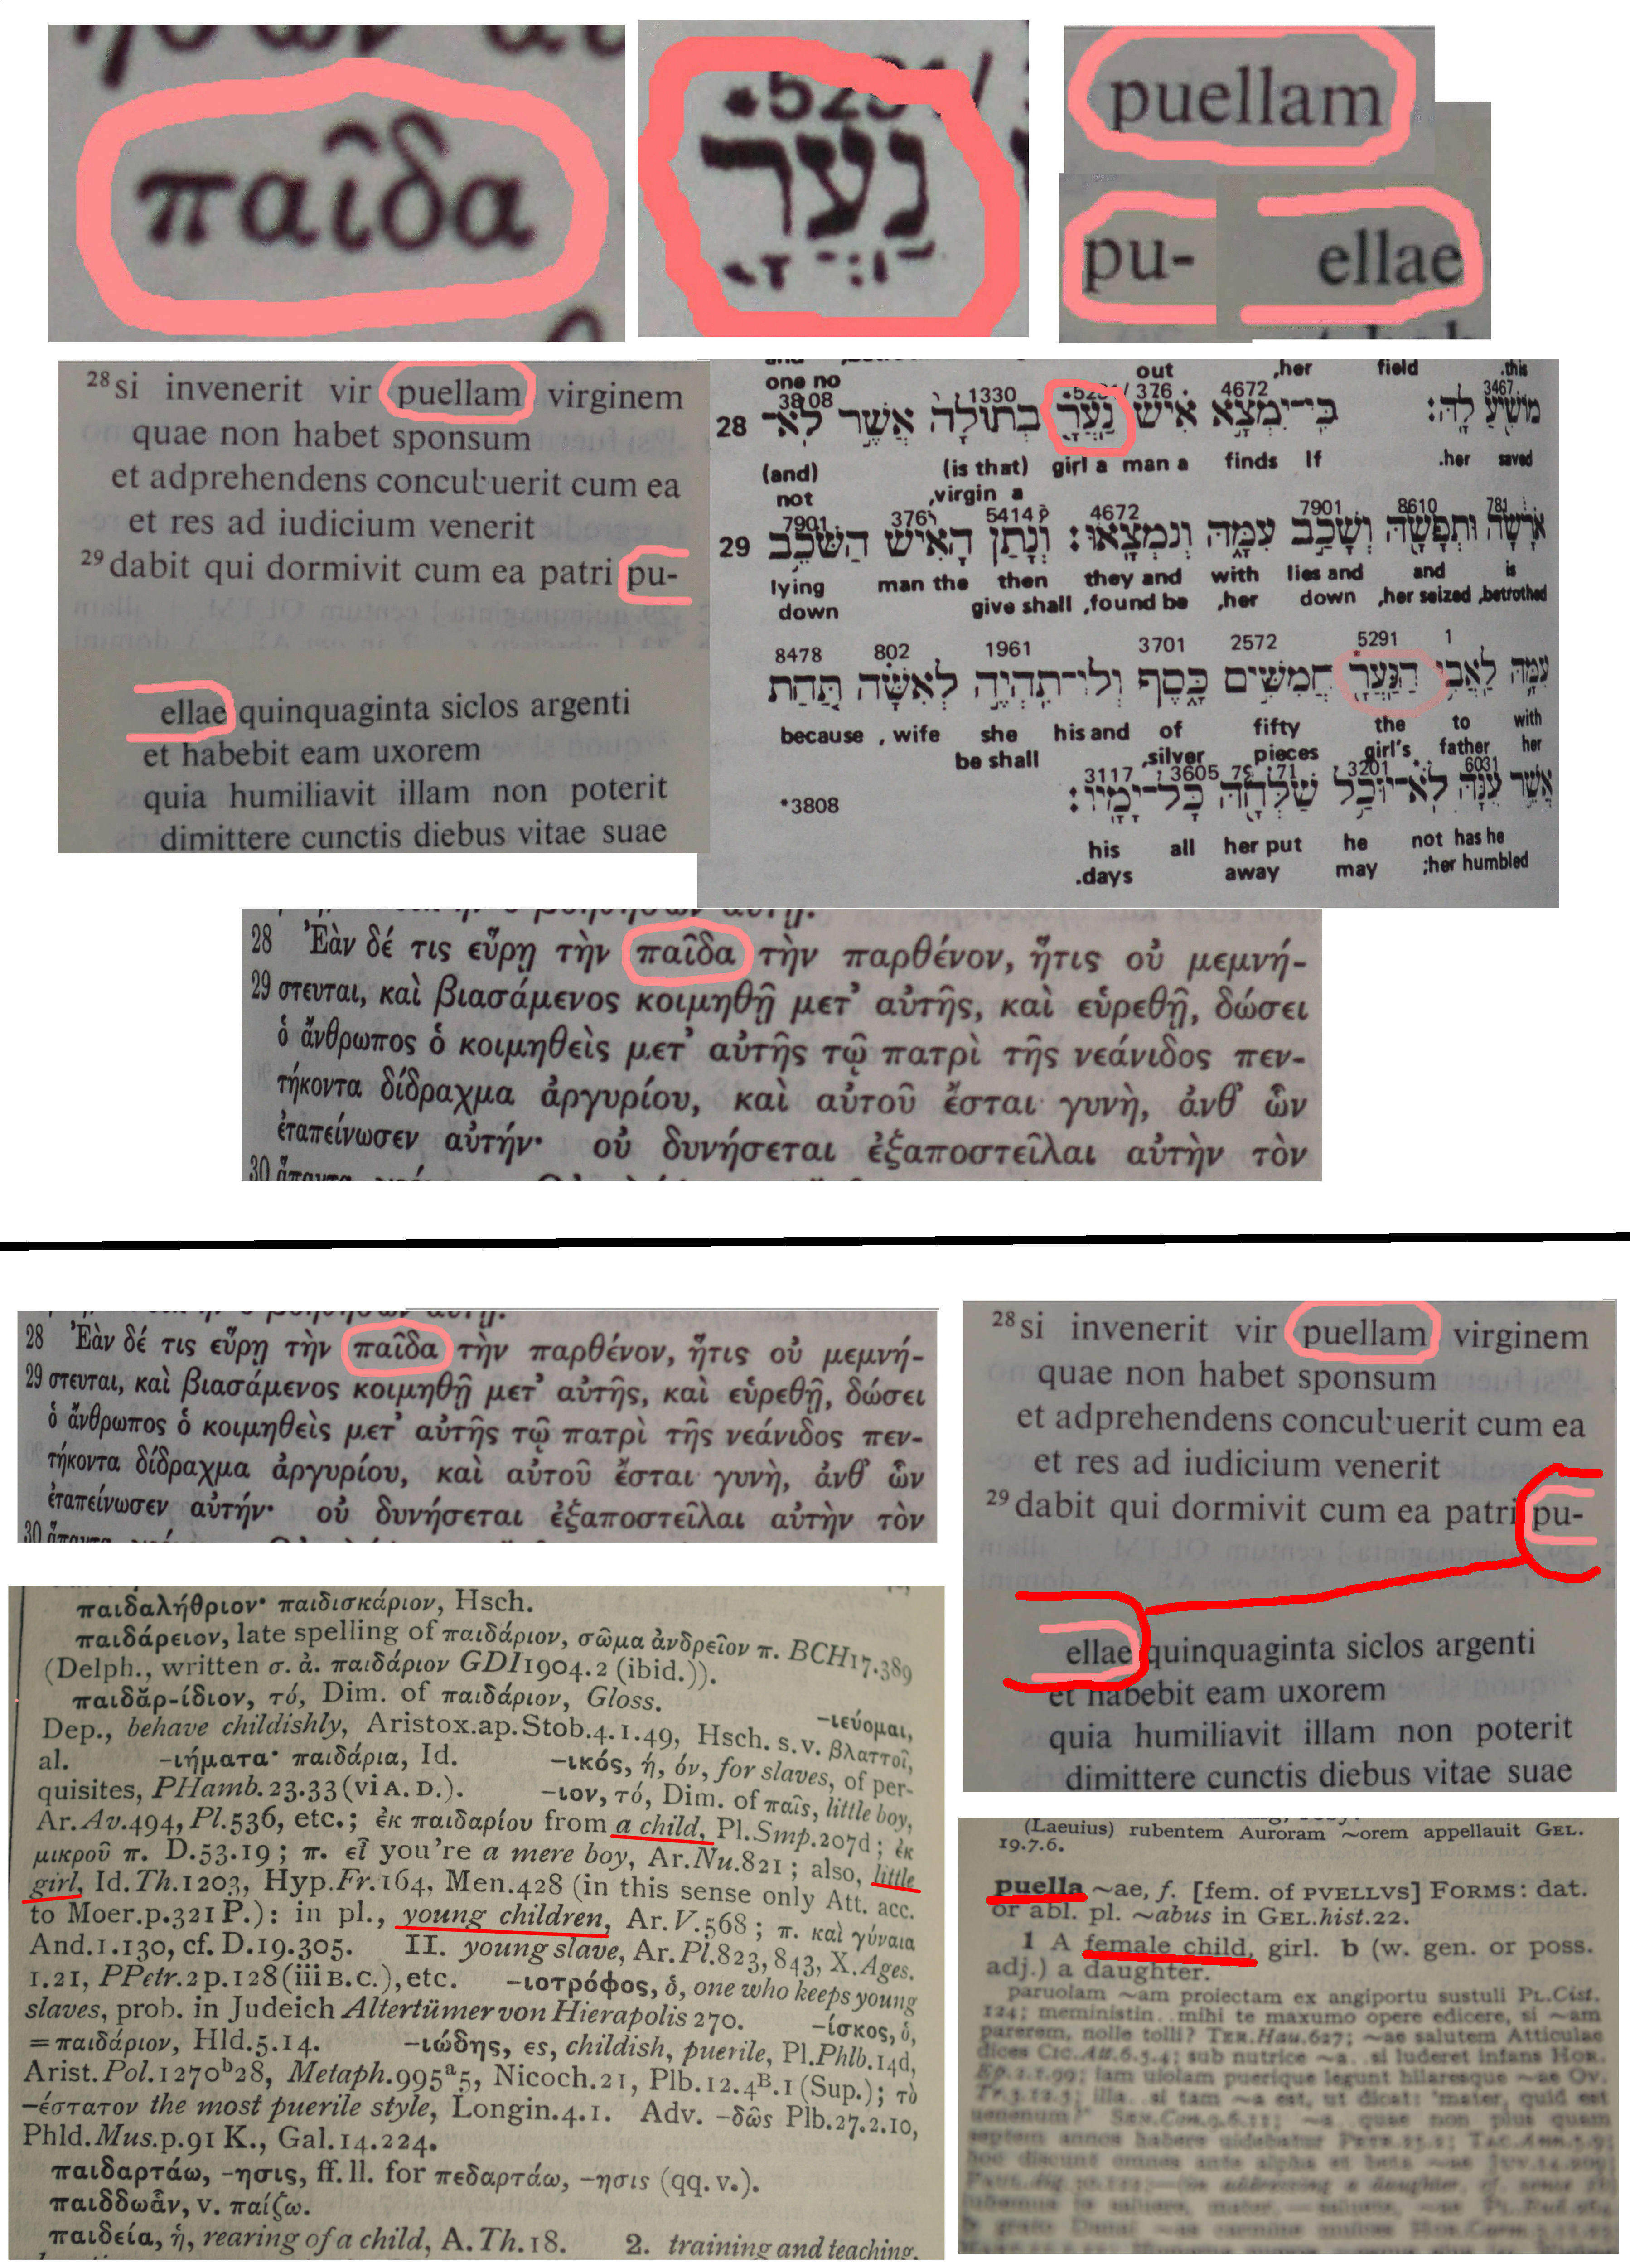 παῖδα
נַעֲרָ
puellam
pu- ellae
28 si invenerit vir puellam virginem
quae non habet sponsum
et adprehendens concubuerit cum ea
et res ad iudicium venerit
29 dabit qui dormivit cum ea patri pu-
ellae quinquaginta siclos argenti
et habebit eam uxorem
quia humiliavit illam non poterit
dimittere cunctis diebus vitae suae
out ,her field .this
one no
3808 1330 376 4672 3467
28 מוֹשִׁיעַ לָהּ׃ כִּי־יִמְצָא אִישׁ נַעֲרָ בְתוּלָה אֲשֶׁר לֹא־
(and) (is that) girl a man a finds If .her saved
not ,virgin a
7901 376 5414 4672 7901 8610 781
29 אֹרָשָׂה וּתְפָשָׂהּ וְשָׁכַב עִמָּהּ וְנִמְצָאוּ׃ וְנָתַן הָאִישׁ הַשֹּׁכֵב
lying man the then they and with lies and and is
down give shall ,found be ,her down ,her seized ,betrothed
8478 802 1961 3701 2572 5291 1
עִמָּהּ לַאֲבִי הַנַּעֲרָ חֲמִשִּׁים כָּסֶף וְלוֹ־תִהְיֶה לְאִשָּׁה תַּחַת
because , wife she his and of fifty the to with
be shall ,silver pieces girl's father her
3117 3605 71 3201 6031
*3808 אֲשֶׁר עִנָּהּ לֹא־יוּכַל שַׁלְּחָהּ כָּל־יָמָיו׃
his all her put he not has he
.days away may ;her humbled
28 Ἐὰν δέ τις εὕρῃ τὴν παῖδα τὴν παρθένον, ἥτις οὐ μεμνή-
29 στευται, καὶ βιασάμενος κοιμηθῇ μετ' αὐτῆς, καὶ εὑρεθῇ, δώσει
ὁ ἄνθρωπος ὁ κοιμηθεὶς μετ' αὐτῆς τῷ πατρὶ τῆς νεάνιδος πεν-
τήκοντα δίδραχμα ἀργυρίου, καὶ αὐτοῦ ἔσται γυνὴ, ἀνθ' ὧν
ἐταπείνωσεν αὐτήν· οὐ δυνήσεται ἐξαποστεῖλαι αὐτὴν τὸν
30
28 Ἐὰν δέ τις εὕρῃ τὴν παῖδα τὴν παρθένον, ἥτις οὐ μεμνή-
29 στευται, καὶ βιασάμενος κοιμηθῇ μετ' αὐτῆς, καὶ εὑρεθῇ, δώσει
ὁ ἄνθρωπος ὁ κοιμηθεὶς μετ' αὐτῆς τῷ πατρὶ τῆς νεάνιδος πεν-
τήκοντα δίδραχμα ἀργυρίου, καὶ αὐτοῦ ἔσται γυνὴ, ἀνθ' ὧν
ἐταπείνωσεν αὐτήν· οὐ δυνήσεται ἐξαποστεῖλαι αὐτὴν τὸν
30
28 si invenerit vir puellam virginem
quae non habet sponsum
et adprehendens concubuerit cum ea
et res ad iudicium venerit
29 dabit qui dormivit cum ea patri pu-
ellae quinquaginta siclos argenti
et habebit eam uxorem
quia humiliavit illam non poterit
dimittere cunctis diebus vitae suae
παιδαλήθριον· παιδισκάριον, Hsch.
παιδάρειον, late spelling of παιδάριον, σῶμα ἀνδρεῖον π. BCH17.389
(Delph., written σ. ἀ. παιδάριον GDI1904.2 (ibid.)).
παιδᾰρ-ίδιον, τό, Dim. of παιδάριον, Gloss. -ιεύομαι,
Dep., behave childishly, Aristox.ap.Stob.4.1.49, Hsch. s.v. βλαττοῖ,
al. -ιήματα· παιδάρια, Id. -ικός, ή, όν, for slaves, of per-
quisites, PHamb.23.33 (vi A. D.). -ιον, τό, Dim. of παῖς, little boy,
Ar.Av.494, Pl.536, etc.; ἐκ παιδαρίου from a child, Pl.Smp.207d; ἐκ
μικροῦ π. D.53.19; π. εἶ you're a mere boy, Ar.Nu.821; also, little
girl, Id.Th.1203, Hyp.Fr.164, Men.428 (in this sense only Att. acc.
to Moer.p.321 P.): in pl., young children, Ar.V.568; π. καὶ γύναια
And.1.130, cf. D.19.305. II. young slave, Ar.Pl.823, 843, X.Ages.
1.21, PPetr.2p.128 (iii B.C.), etc. -ιοτρόφος, ὁ, one who keeps young
slaves, prob. in Judeich Altertümer von Hierapolis 270. -ίσκος, ὁ,
=παιδάριον, Hld.5.14. -ιώδης, ες, childish, puerile, Pl.Phlb.14d,
Arist.Pol.1270b28, Metaph.995a5, Nicoch.21, Plb.12.4B.1 (Sup.); τὸ
-έστατον the most puerile style, Longin.4.1. Adv. -δῶς Plb.27.2.10,
Phld.Mus.p.91 K., Gal.14.224.
παιδαρτάω, -ησις, ff. ll. for πεδαρτάω, -ησις (qq. v.).
παιδδωἅν, v. παίζω.
παιδεία, ἡ, rearing of a child, A.Th.18. 2. training and teaching,
(Laeuius) rubentem Auroram ~orem appellauit GEL.
19.7.6.
puella ~ae, f. [fem. of PVELLVS] FORMS: dat.
or abl. pl. ~abus in GEL.hist.22.
1 A female child, girl. b (w. gen. or poss.
adj.) a daughter.
paruolam ~am proiectam ex angiportu sustuli PL.Cist.
124; meministin.. mihi te maxumo opere edicere, si ~am
parerem, nolle tolli? TER.Hau.627; ~ae salutem Atticulae
dices CIC.Att.6.5.4; sub nutrice ~a.. si luderet infans HOR.